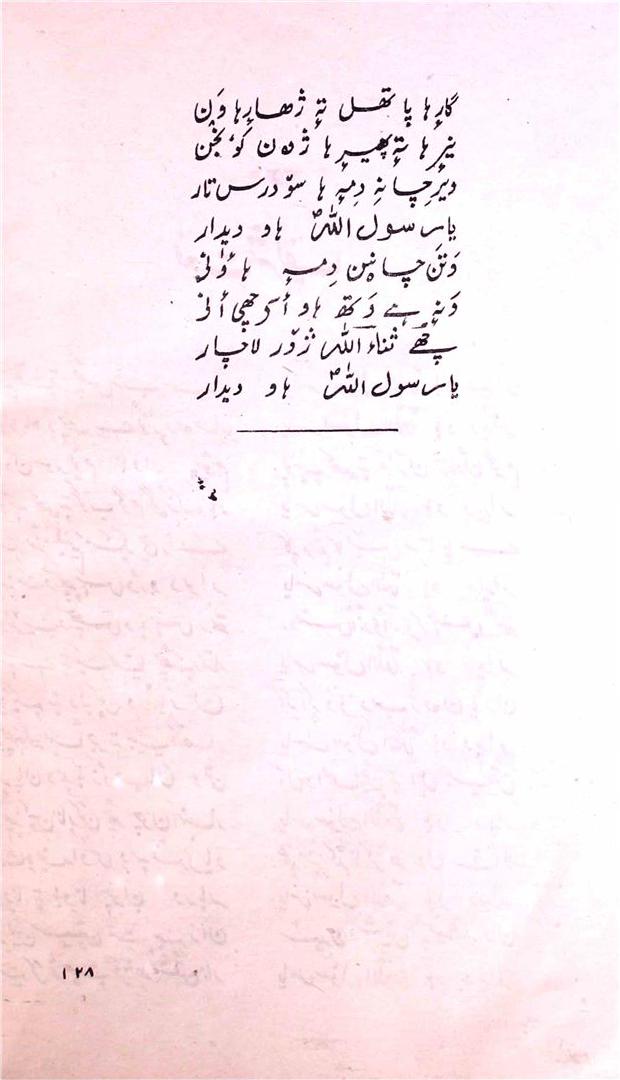 گارِہا پاتھل تہٕ ژھارِہا وَن
نیرِہا تہٕ پھیرِہا ژھ ن کوٗ نجَن
دیرِچانہِ دِمہٕ ہا سوٚ درس تار
یا رسول اللہؐ ہاو دیدار
وَتن چانین دِمہٕ ہا وٲنی
وَنہٕ ہے وَتھ ہاو أسۍ چھِی أنی
چھُے ثناء اللہ زوٚر لاچار
یا رسول اللہؐ ہاو دیدار
۱۲۸